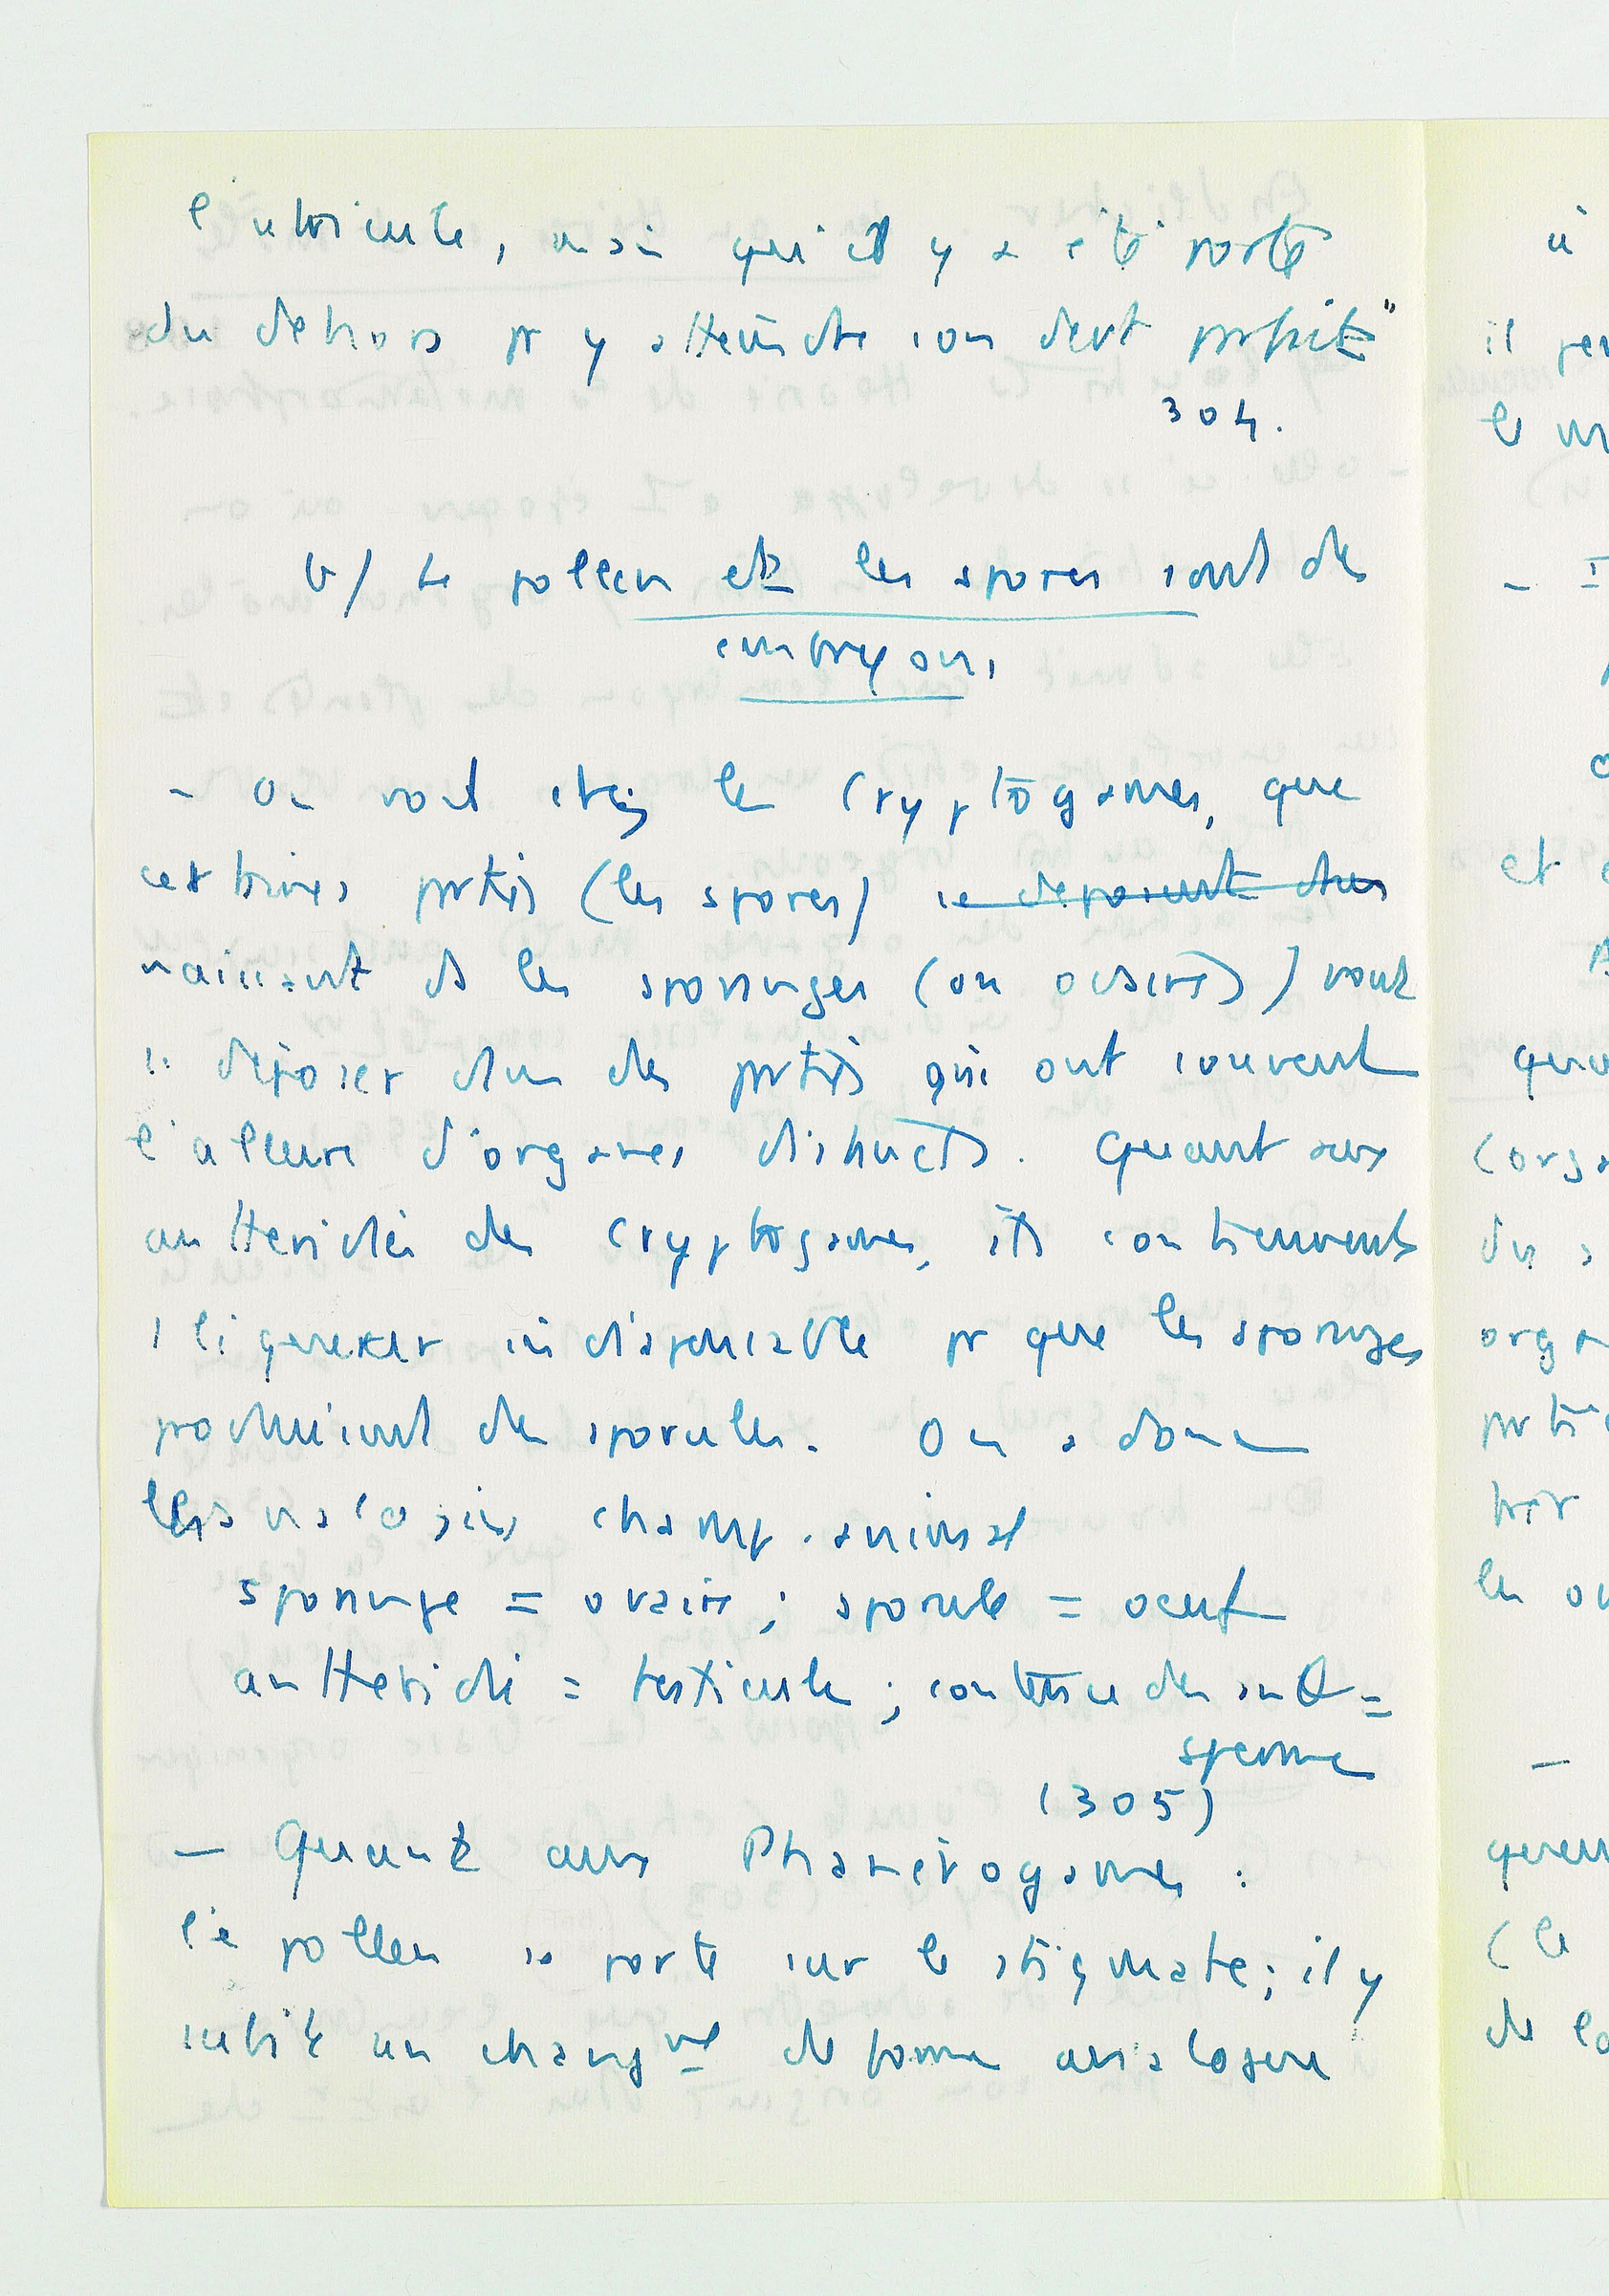 l'utricule, mais qu'il y a été porté
du dehors pr y atteindre son devt parfait"
304.
b/ Le pollen et les spores sont des
embryons
- On voit chez les Cryptogames, que
certaines parties (les spores) se déposent dans
naissent ds les sporanges (ou ovaires) vont
se déposer dans des parties qui ont souvent
l'allure d'organes distincts. Quant aux
anthéridies des Cryptogames, ils contiennent
liqueur indispensable pr que les sporanges
produisent des sporules. On a donc
les analogies champ. animal
sporange = ovaire ; sporule = oeuf
anthéridie = testicule ; contenu des anth =
sperme
(305)
- Quant aux Phanérogames :
le pollen se porte sur le stigmate ; il y
subit un changmt de forme analogue